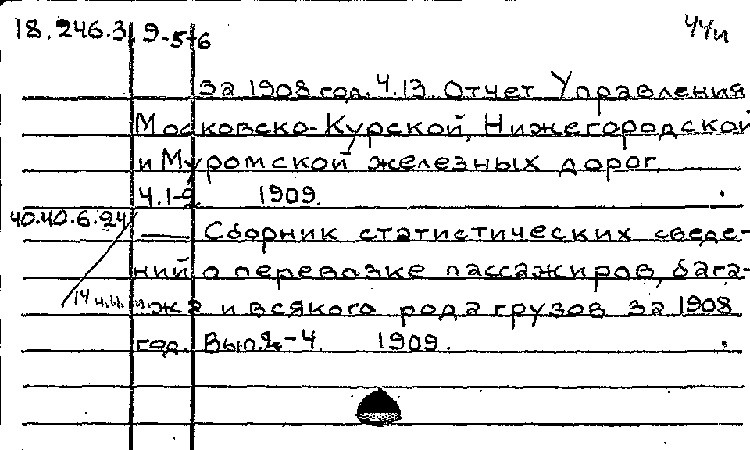 18.246.3 9-5-6 44и
за 1908 год. Ч.13. Отчет Управления
Московско-Курской, Нижегородской
и Муромской железных дорог.
Ч.1-2. 1909.
40.40.6.94
— Сборник статистических сведе-
ний о перевозке пассажиров, бага-
14 жа и всякого рода грузов за 1908
год. Вып. -4. 1909.